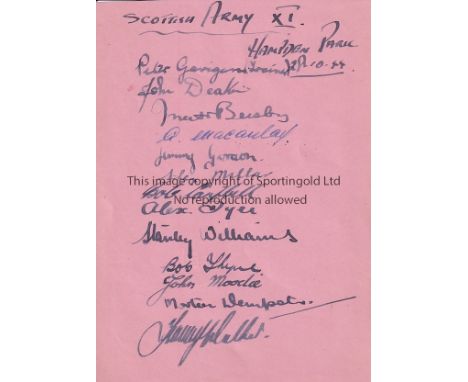 SCOTTISH ARMY XI.
HAMPDEN PARK
Peter Gavigan Trainer 28-10-44
John Deakin
Matt Busby
A. Macaulay.
Jimmy Gordon.
This image copyright of Sportingold Ltd
Bob
No reproduction allowed
Alex. Dyer
Stanley Williams
Bob Thyne
John Moodie
Morton Dempster.
Tommy Walker.